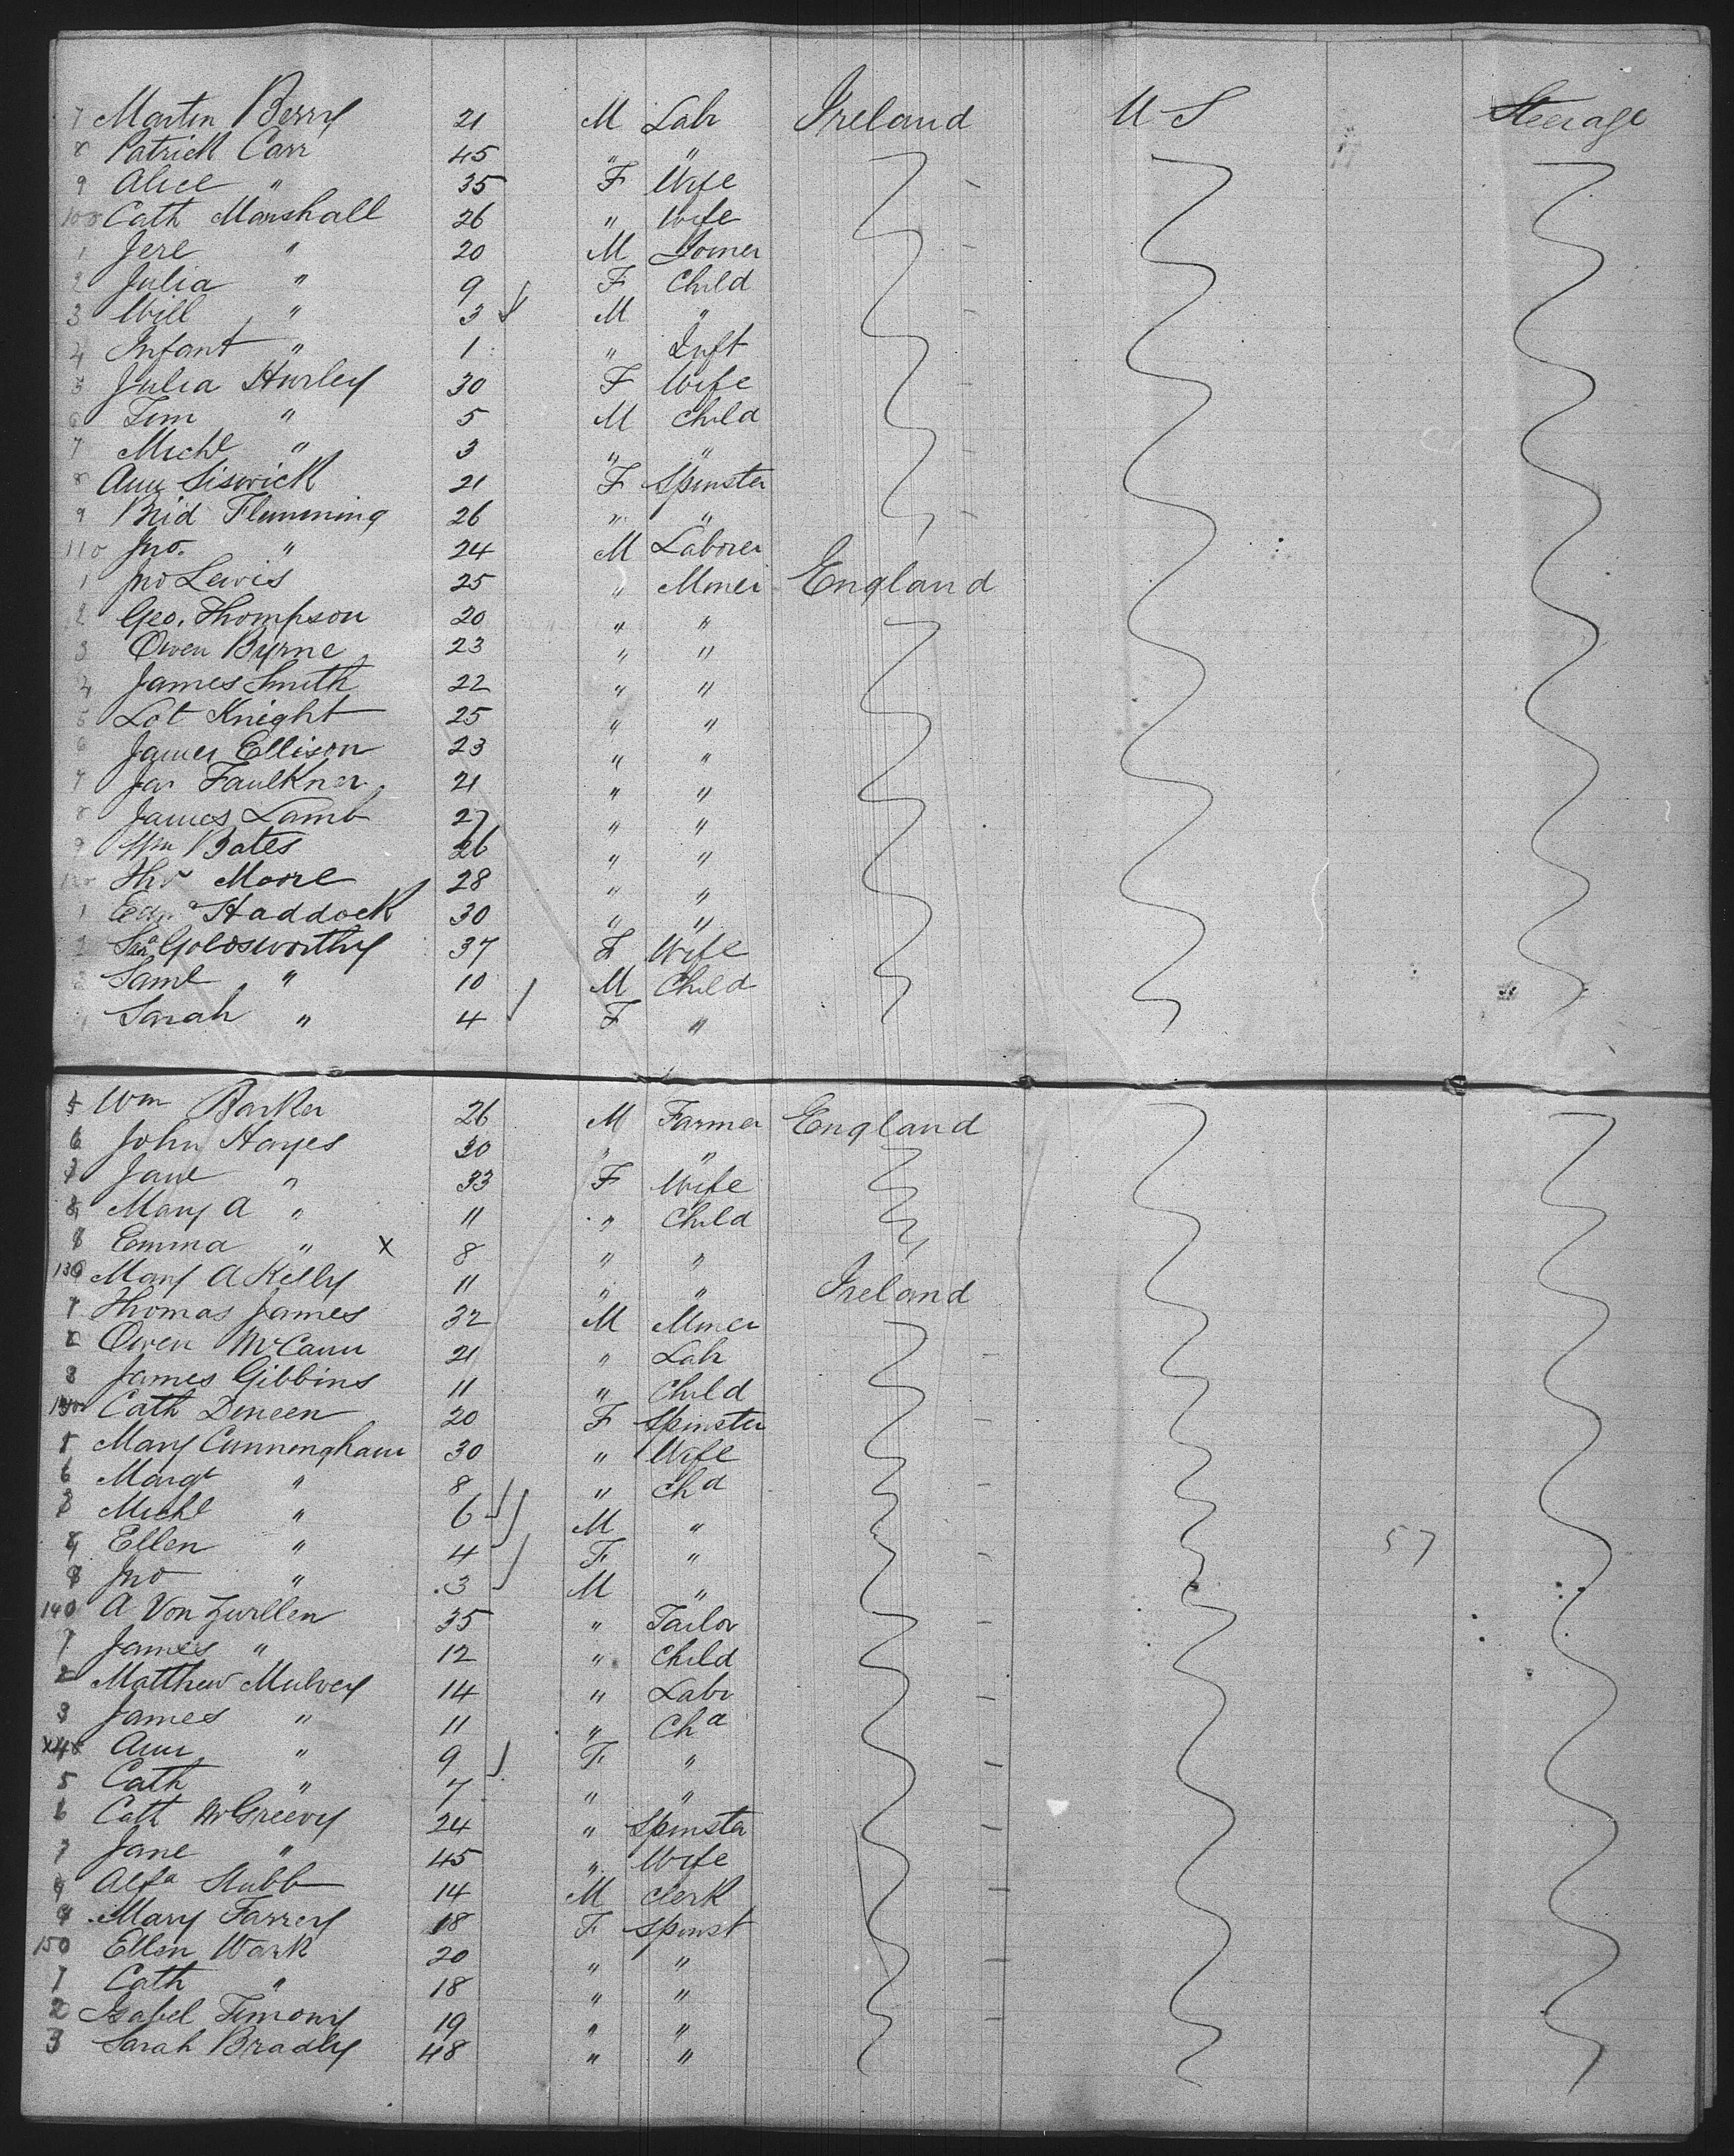 7 Martin Berry 21 M Labr Ireland U S Steerage
8 Patrick Carr 45 " "
9 Alice " 35 F Wife
100 Cath Marshall 26 " Wife
1 Jere " 20 M Joiner
2 Julia " 9 F Child
3 Will " 3 M "
4 Infant " 1 " Inft
5 Julia Hurley 30 F Wife
6 Tim " 5 M Child
7 Michl " 3 " "
8 Ann 21 F Spinster
9 Brid Flemming 26 " "
110 Jno. " 24 M Laborer
1 Jno Lewis 25 " Miner England
2 Geo. Thompson 20 " "
3 Owen Byrne 23 " "
4 James Smith 22 " "
5 Lot Knight 25 " "
6 James Ellison 23 " "
7 Jas Faulkner 21 " "
8 James Lamb 27 " "
9 Wm Bates 26 " "
120 Thos Moore 28 " "
1 Edwd Haddock 30 " "
2 Goldsworthy 37 F Wife
3 Saml " 10 M Child
4 Sarah " 4 F "
5 Wm Barker 26 M Farmer England
6 John Hayes 30 " "
7 Jane " 33 F Wife
8 Mary A " 11 " Child
9 Emma " x 8 " "
130 Mary A Kelly 11 " " Ireland
1 Thomas James 32 M Miner
2 Owen McCann 21 " Labr
3 James Gibbins 11 " Child
Cath Dineen 20 F Spinster
5 Mary Cunningham 30 " Wife
6 Margt " 8 " Chd
7 Michl " 6 M "
8 Ellen " 4 F " 57
9 Jno " 3 M "
140 A Von Zurllen 35 " Tailor
1 James " 12 " Child
2 Matthew Mulvey 14 " Labr
3 James " 11 " Chd
4 Ann " 9 F "
5 Cath " 7 " "
6 Cath McGreevy 24 " Spinster
7 Jane " 45 " Wife
8 Alfd Stubb 14 M Clerk
9 Mary Farrey 18 F Spinst
150 Ellen Wark 20 " "
1 Cath " 18 " "
2 Isabel Timony 19 " "
3 Sarah Bradly 48 " "